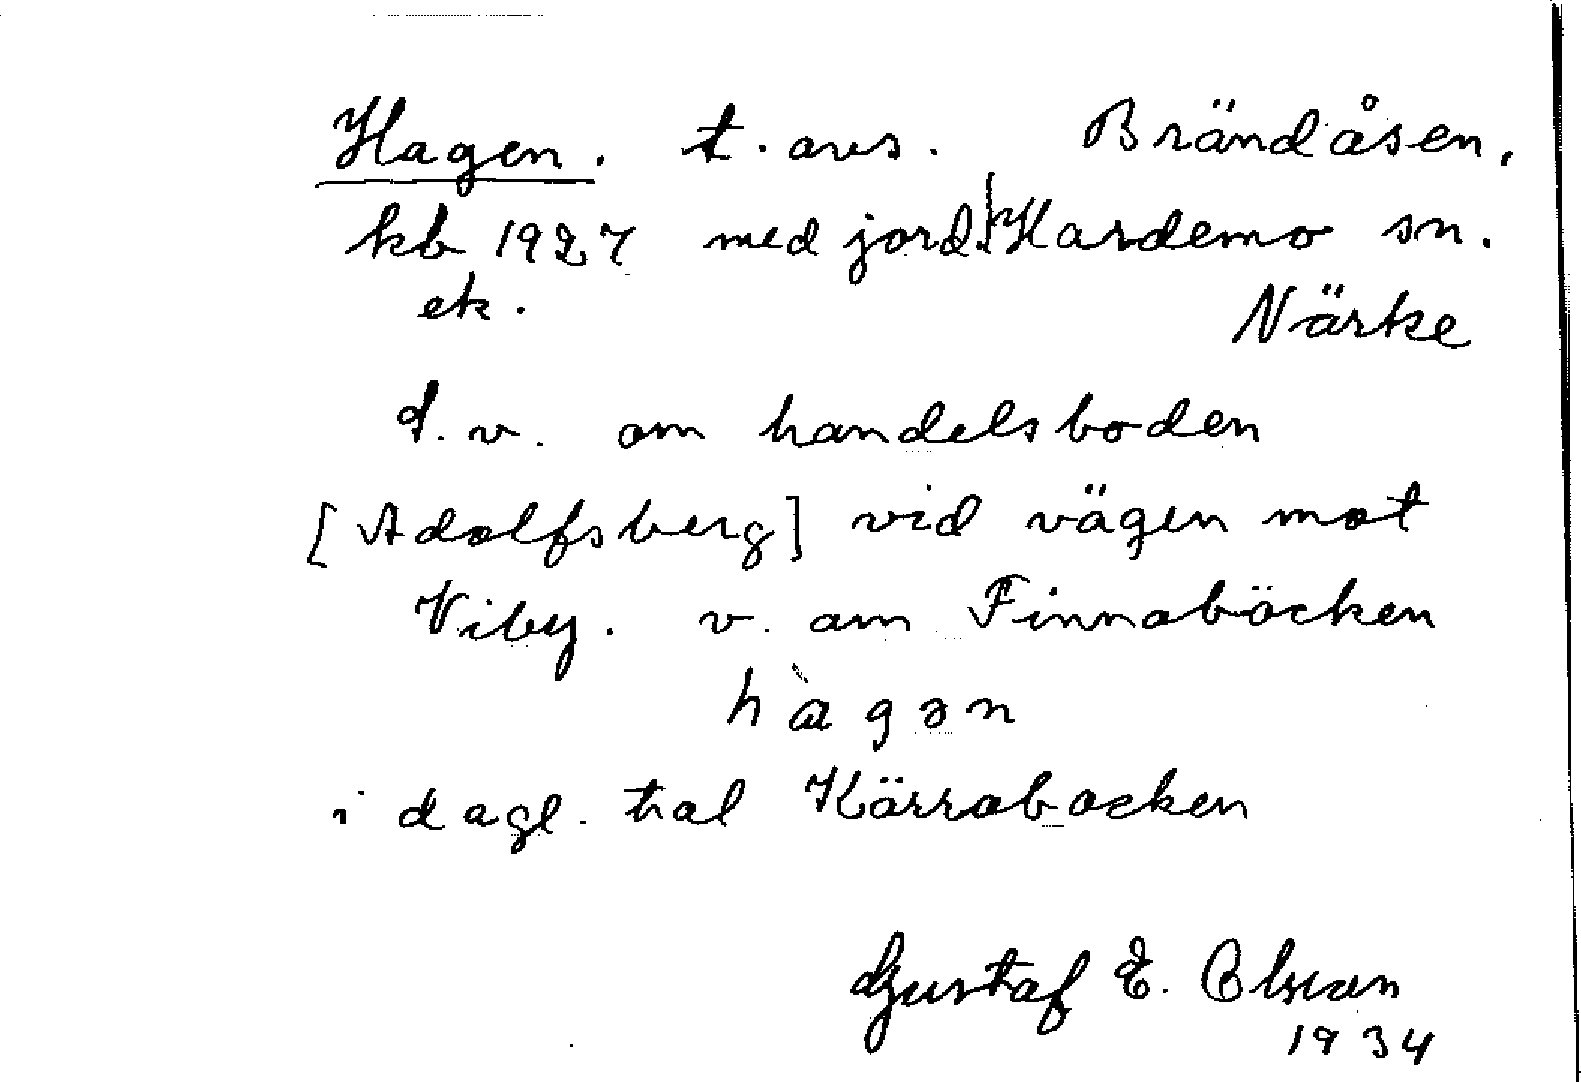 Hagen. t. avs. Brändåsen,
kb 1927 med jord. Hardemo sn.
ek. Närke
d. v. om handelsboden
[Adolfsberg] vid vägen mot
Viby. v. om Finnabäcken
hàgən
i dagl. tal Kärrabacken
Gustaf E. Olsson
1934